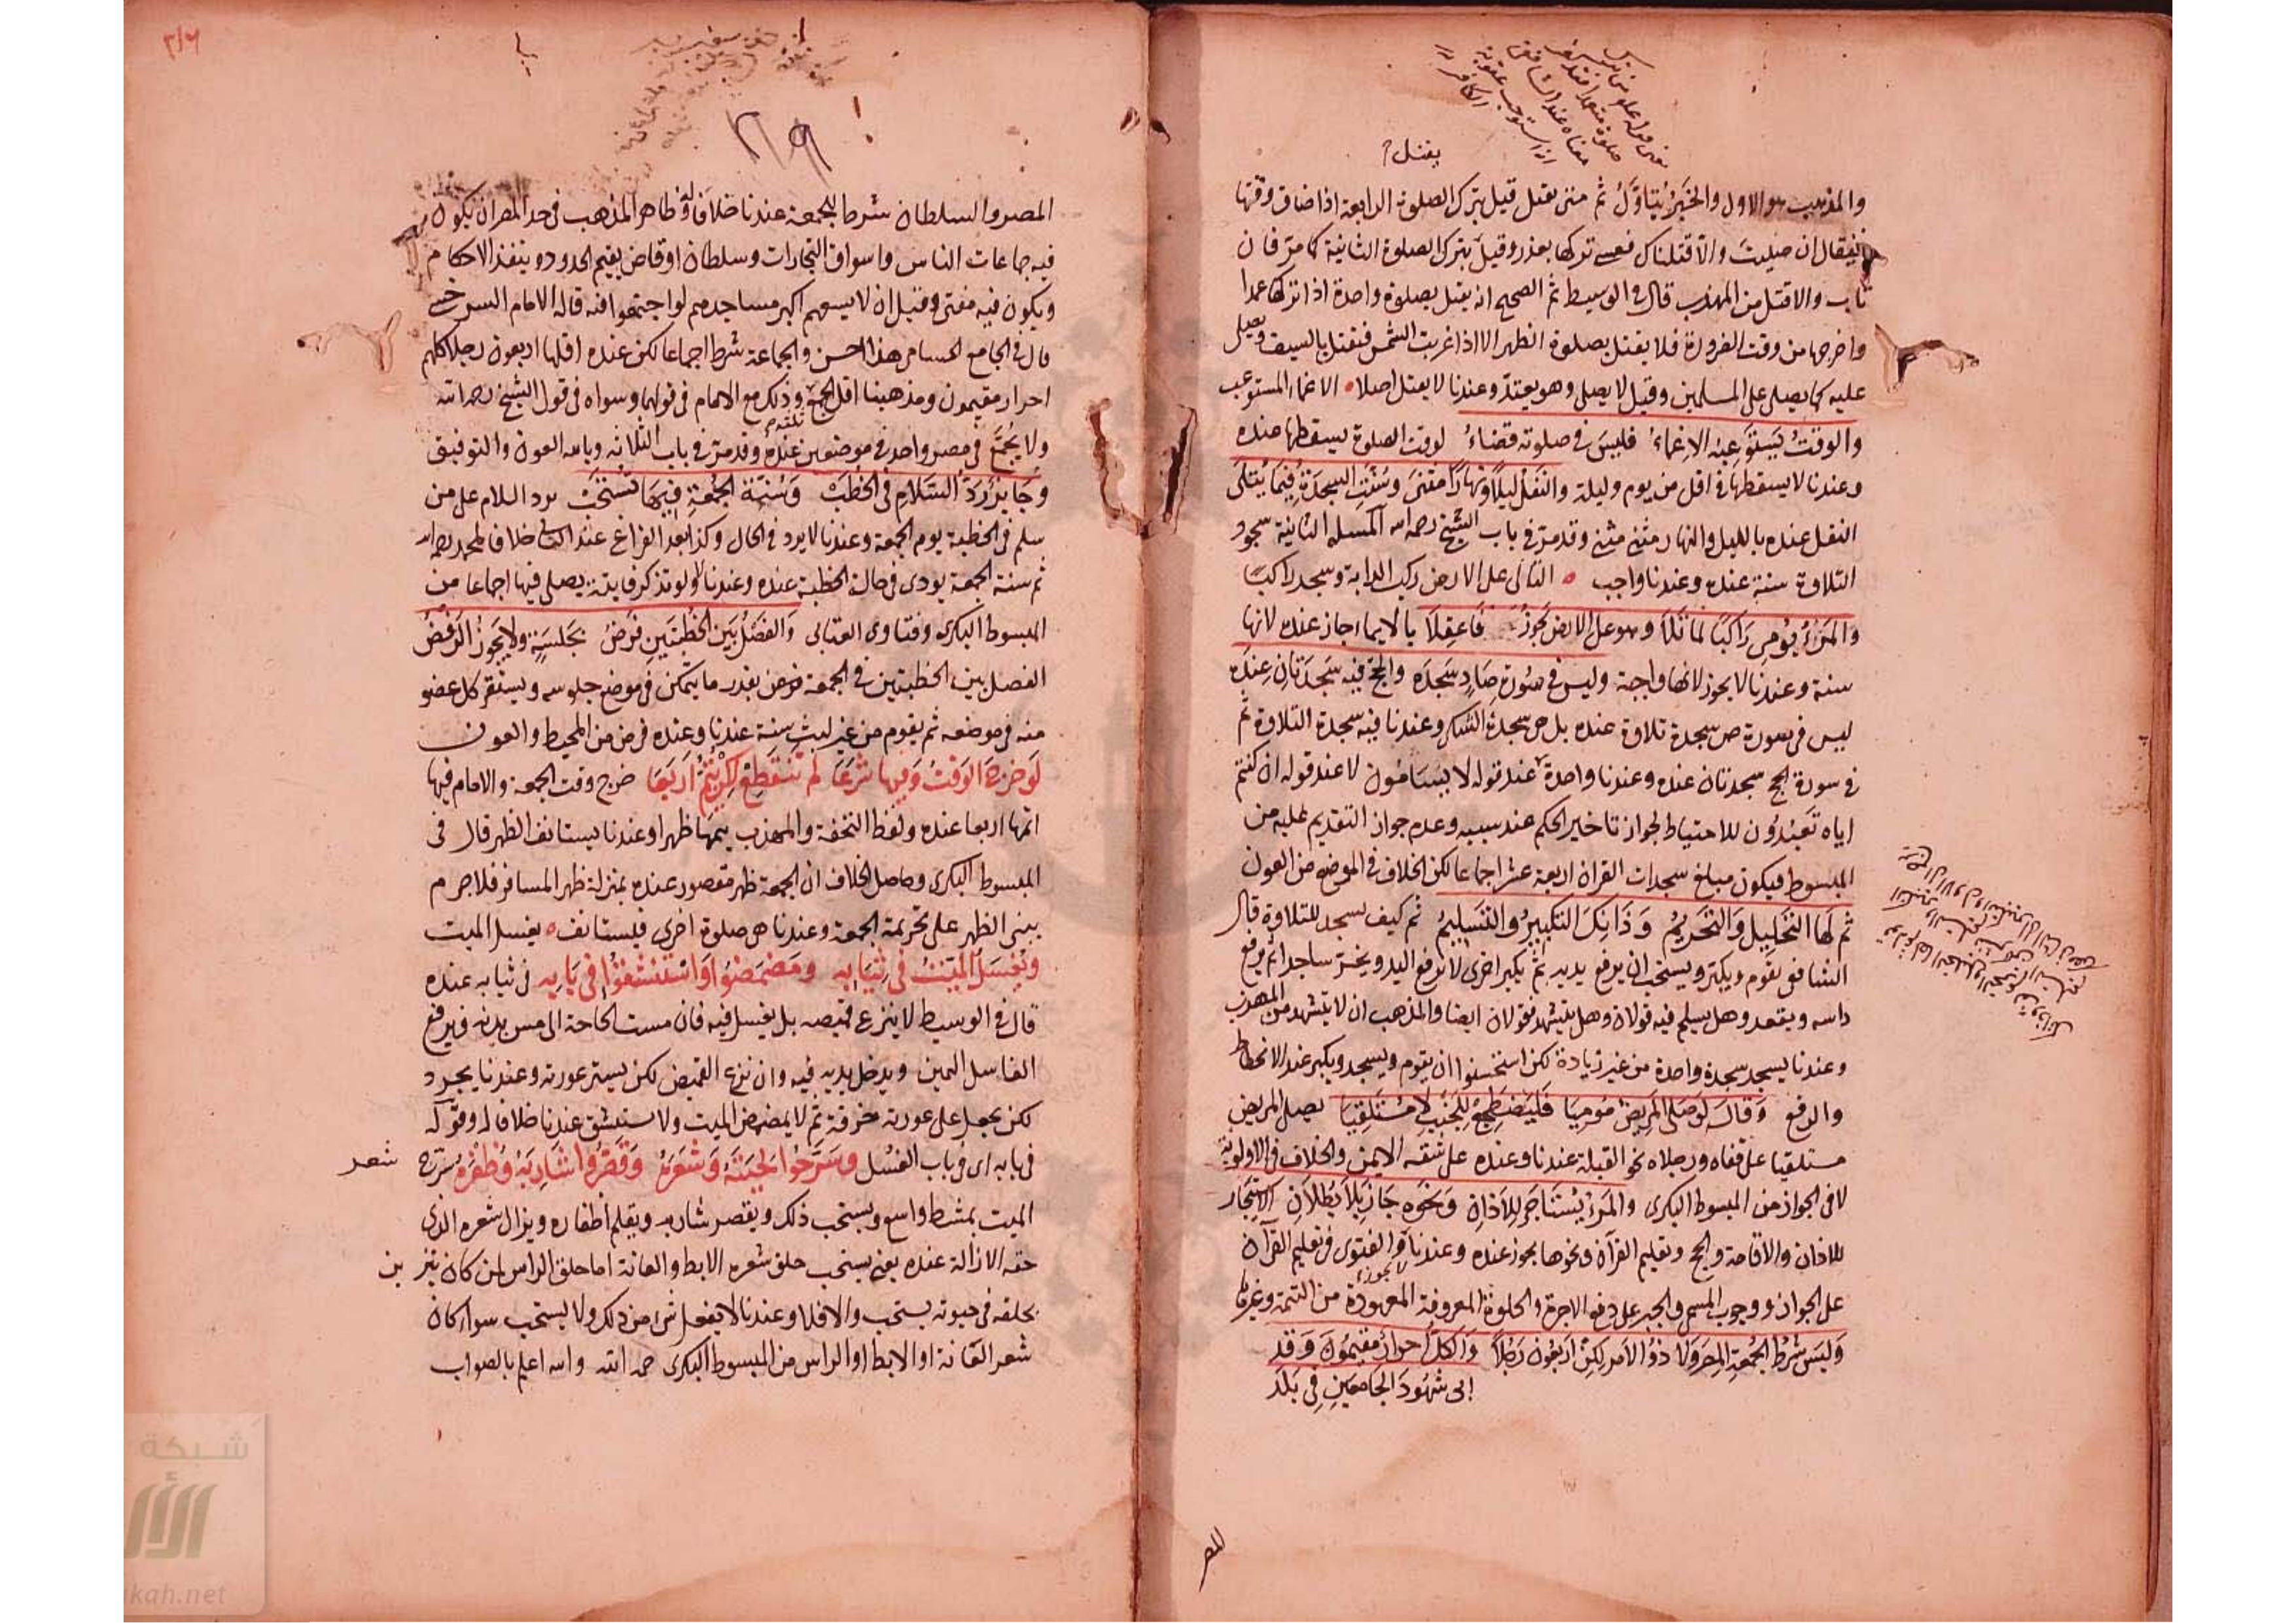 يقتل
والمذهب هو الاول والخبر يتاول ثم متى يقتل قيل بترك الصلوة الرابعة اذا ضاق وقتها
فيقال ان صليت والا قتلناك فعسى تركها بعذر وقيل بترك الصلوة الثانية كما مر فان
تاب والا قتل من المهذب قال في الوسيط ثم الصحيح انه يقتل بصلوة واحدة اذا تركها عمدا
واخرجها من وقت الضرورة فلا يقتل بصلوة الظهر الا اذا غربت الشمس فتقتل بالسيف ويصلى
عليه كما يصلى على المسلمين وقيل لا يصلى وهو يعتد وعندنا لا يقتل اصلا الاغماء المستوعب
والوقت يَستَوعِبه الاغماءُ فليس في صلوته قضاءُ لوقت الصلوة يسقطها عنده
وعندنا لا يسقطها في اقل من يوم وليلة والنفل ليلا ونهارا مثنى وسُنّت السجدة فيما يُتلى
النفل عنده بالليل والنهار مثنى مثنى وقد مر في باب الشيخ رحمه الله المسلة الثانية سجود
التلاوة سنة عنده وعندنا واجب التالى على الارض ركب الدابة وسجد راكبا
والمرءُ يُومِى راكبًا لما تَلا وهو على الارض يجوز فاعقلا بالايماء جاز عنده لانها
سنة وعندنا لا يجوز لانها واجبة وليس في سُورة صادٍ سَجدَه والحج فيه سَجدَتانِ عِندَه
ليس في سورة ص سجدة تلاوة عنده بل هى سجدة الشكر وعندنا فيه سجدة التلاوة ثم
في سورة الحج سجدتان عنده وعندنا واحدة عند قوله لا يسئامون لا عند قوله ان كنتم
اياه تعبدون للاحتياط لجواز تاخير الحكم عند سببه وعدم جواز التقديم عليه من
المبسوط فيكون مبلغ سجدات القران اربعة عشر اجماعا لكن الخلاف في الموضع من العون
ثم لها التحليل والتحريم وَذانك التكبيرُ والتسليمُ ثم كيف يسجد للتلاوة قال
الشافعى يقوم ويكبر ويستحب ان يرفع يديه ثم يكبر اخرى لا يرفع اليد ويخر ساجدا ثم يرفع
راسه ويقعد وهل يسلم فيه قولان وهل يتشهد فقولان ايضا والمذهب ان لا يتشهد من المهذب
وعندنا يسجد سجدة واحدة من غير زيادة لكن استحسنوا ان يقوم ويسجد ويكبر عند الانحطاط
والرفع وَقالَ لو صَلى المريضُ مُوميا فَليَضطجع للجنب لا مُستَلقِيا يصلى المريض
مستلقيا على قفاه ورجلاه نحو القبلة عندنا وعنده على شقه الايمن والخلاف في الاولوية
لا في الجواز من المبسوط البكرى والمرءُ يُستاجَر للاذان وَنحوِه جاز بلا بُطلان الاستيجار
للاذان والاقامة والحج وتعليم القرآن ونحوها يجوز عنده وعندنا لا يجوز والفتوى في تعليم القرآن
على الجواز ووجوب المسمى والجبر على دفع الاجرة والحلوة المعروفة المعهودة من التتمة وغيرها
وَليسَ شرطُ الجُمعةِ المِصرُ ولا ذو الامر لكن اربعُون رَجُلا وَالكلُّ احرارٌ مقيمُون وَقد
ابى شهُودَ الجامعَين في بَلَد
المصر

المصر والسلطان شرط للجمعة عندنا خلافا له وفي ظاهر المذهب في حد المصر ان يكون
فيه جماعات الناس واسواق التجارات وسلطان او قاض يقيم الحدود وينفذ الاحكام
ويكون فيه مفتى وقيل ان لا يسعهم اكبر مساجدهم لو اجتمعوا فيه قاله الامام السرخسى
قال في الجامع الحسامى هذا احسن والجماعة شرط اجماعا لكن عنده اقلها اربعون رجلا كلهم
احرار مقيمون ومذهبنا اقل الجمع ثلثة وذلك مع الامام في قولهما وسواه في قول الشيخ رحمه الله
ولا يُجمَّع في مصر واحد في موضعين عنده وقد مر في باب الثلاثه وبالله العون والتوفيق
وَجايز رَدّ السَلام في الخطب وَسُنّة الجُمعةِ فيها تُستحب يرد السلام على من
سلم في الخطبة يوم الجمعة وعندنا لا يرد في الحال وكذا بعد الفراغ عند الثانى خلافا لمحمد رحمه الله
ثم سنة الجمعة يودى في حالة الخطبة عنده وعندنا لا ولو تذكر فايتة يصلى فيها اجماعا من
المبسوط البكرى وفتاوى العتابى وَالفصل بَين الخطبتَين فَرضُ بجَلسَةٍ ولا يَجوز الرفضُ
الفصل بين الخطبتين في الجمعة فرض بقدر ما يتمكن في موضع جلوسه ويستقر كل عضو
منه في موضعه ثم يقوم من غير لبث سنة عندنا وعنده فرض من المحيط والعون
لَو خرجَ الوَقتُ وَفيها شَرَعَا لم تَنقَطِع لكن يُتمُّ اَربَعَا خرج وقت الجمعة والامام فيها
اتمها اربعا عنده ولفظ التحفة والمهذب يتمها ظهرا وعندنا يستانف الظهر قال في
المبسوط البكرى وحاصل الخلاف ان الجمعة ظهر مقصور عنده بمنزلة ظهر المسافر فلا جرم
يبنى الظهر على تحريمة الجمعة وعندنا هى صلوة اخرى فيستانف يغسل الميت
وَيُغسَلُ الميّتُ في ثيابه وَمَضمَضُوا وَاستَنشَقُوا في بابِه في ثيابه عنده
قال في الوسيط لا ينزع قميصه بل يغسل فيه فان مست الحاجة الى مس بدنه فيرفع
الغاسل اليمين ويدخل يديه فيه وان نزع القميص لكن يستر عورته وعندنا يجرد
لكن يجعل على عورته خرقة ثم لا يمضمض الميت ولا يستنشق عندنا خلافا له وقوله
في بابه اى في باب الغسل وسَرّحُوا لحيَتَهُ وَشعرَهُ وَقَصّرُوا شاربَهُ وَظفرَهُ يسرح شعر
الميت بمشط واسع ويستحب ذلك ويقصر شاربه ويقلم اظفاره ويزال شعره الذى
حقه الازالة عنده يعنى يستحب حلق شعره الابط والعانة اما حلق الراس لمن كان يتزين
بحلقه في حيوته يستحب والا فلا وعندنا لا يفعل شئ من ذلك ولا يستحب سواء كان
شعر العانة او الابط او الراس من المبسوط البكرى رحمه الله والله اعلم بالصواب